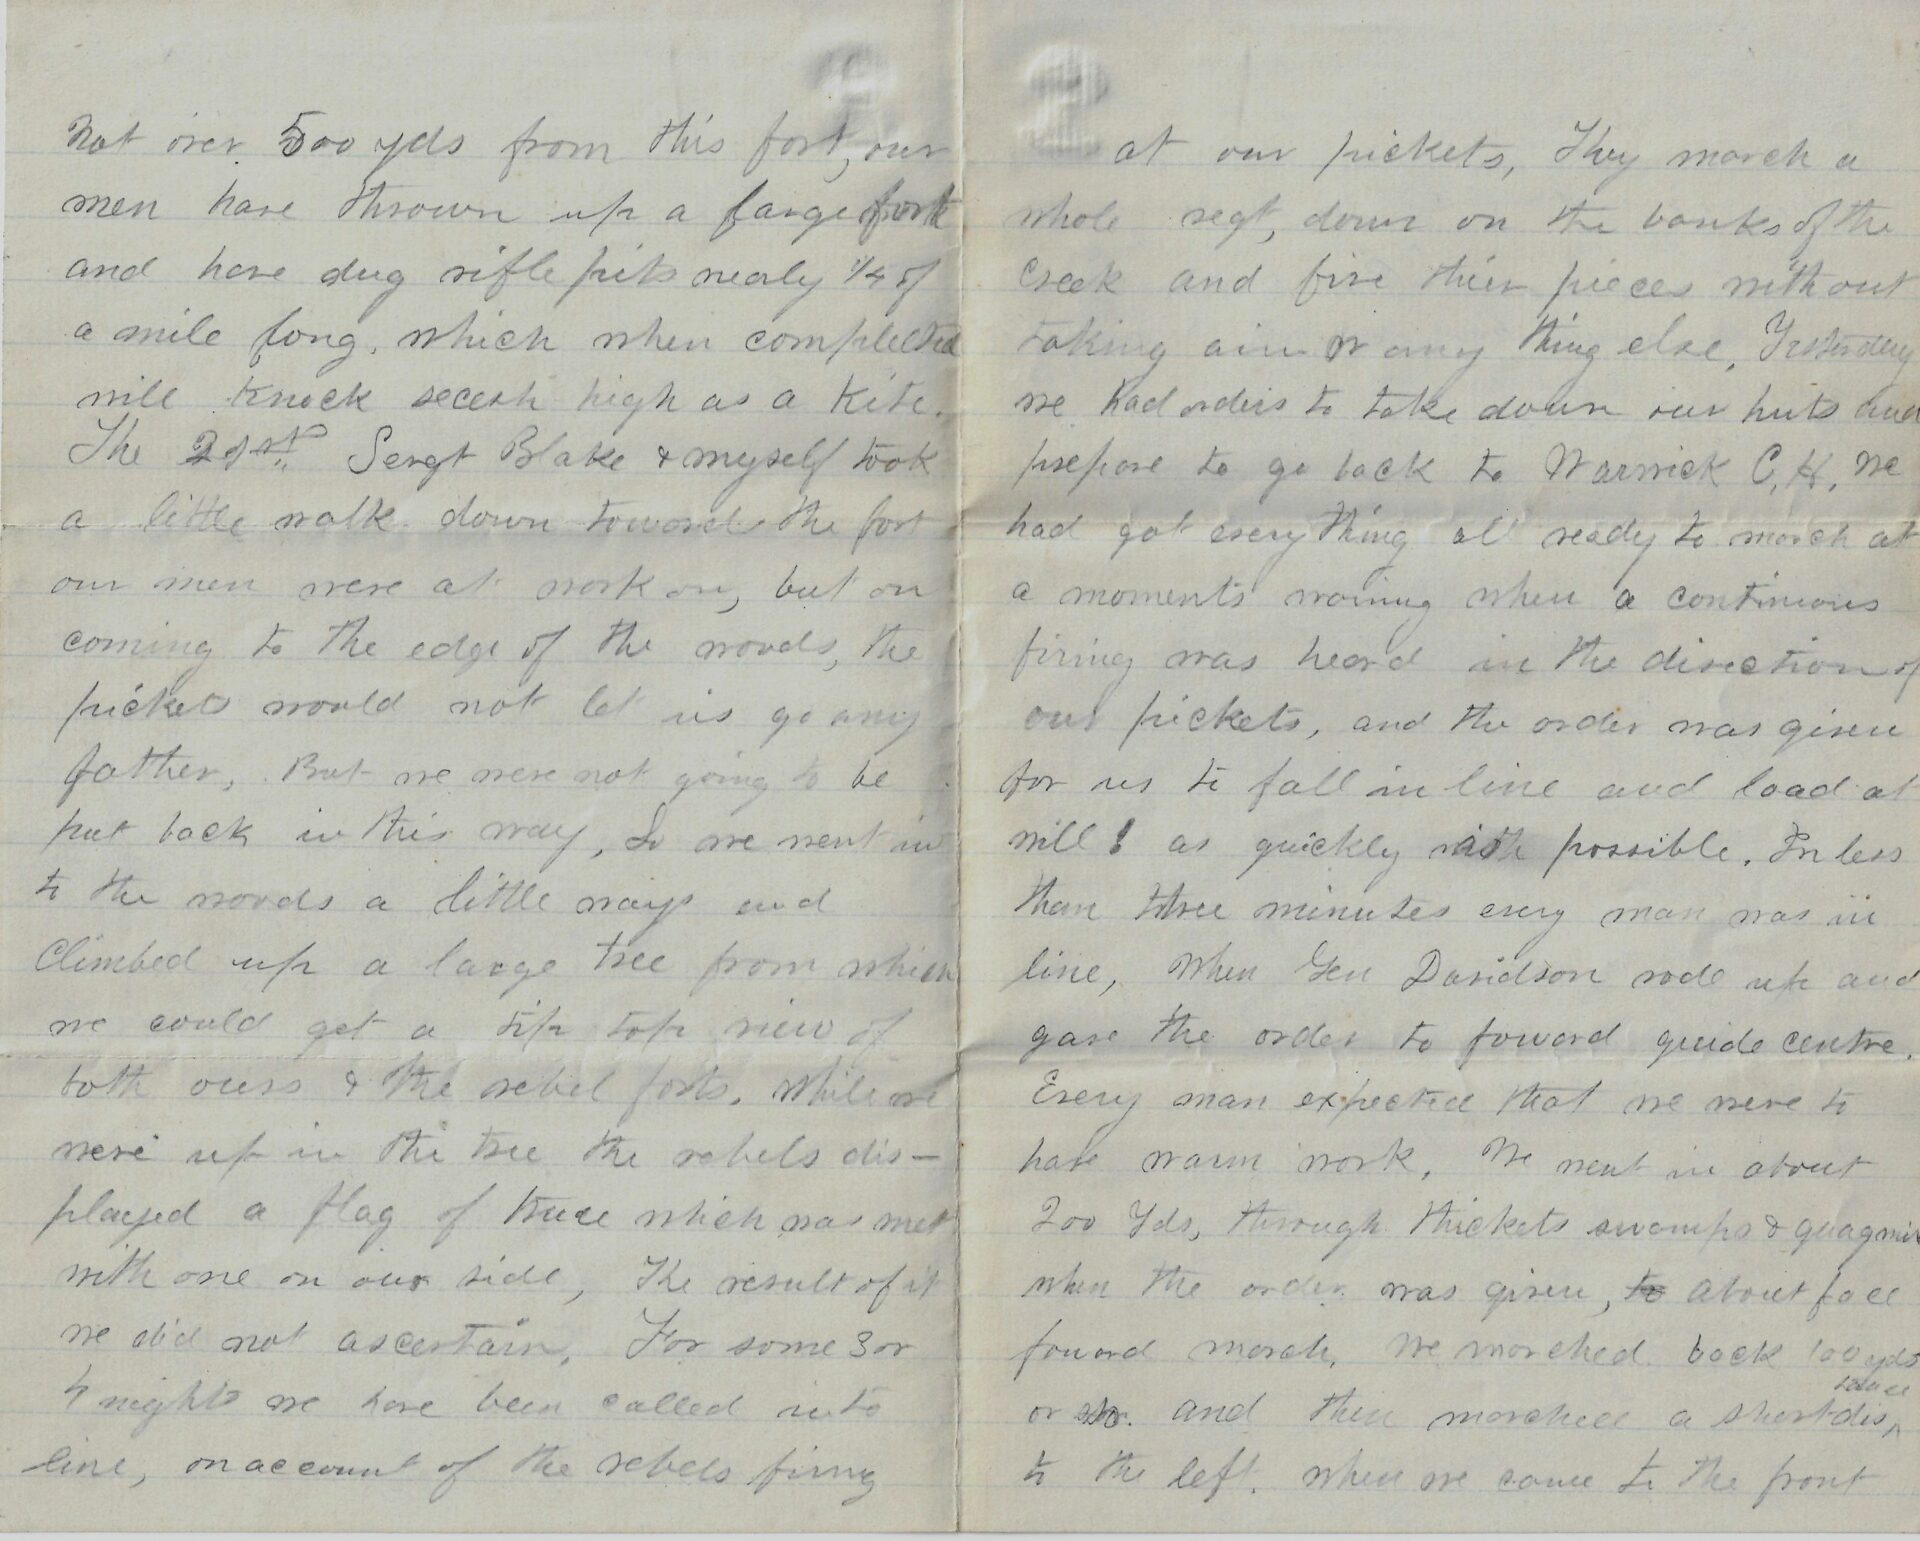 Not over 500 yds from this fort, our
men have thrown up a large fort
and have dug rifle pits nearly 1/4 of
a mile long, which when completed
will knock secesh high as a kite.
The 21st Sergt Blake & myself took
a little walk down towards the fort
our men were at work on, but on
coming to the edge of the woods, the
pickets would not let us go any
father, But we were not going to be
put back in this way, So we went in
to the woods a little ways and
climbed up a large tree from which
we could get a tip top view of
both ours & the rebel forts. While we
were up in the tree the rebels dis-
played a flag of truce which was met
with one on our side, The result of it
we did not ascertain. For some 3 or
4 nights we have been called into
line, on account of the rebels firing
at our pickets, They march a
whole regt, down on the banks of the
creek and fire thier pieces without
taking aim or any thing else, Yesterday
we had orders to take down our huts and
prepare to go back to Warwick C, H, We
had got every thing all ready to march at
a moments warning when a continuous
firing was heard in the direction of
our pickets, and the order was given
for us to fall in line and load at
will as quickly as possible. In less
than three minutes every man was in
line, When Gen Davidson rode up and
gave the order to foward guide centre.
Every man expected that we were to
have warm work. We went in about
200 Yds, through thickets swamps & quagmir
when the order was given, to about face
foward march, We marched back 100 yds
or so. and then marched a short distance
to the left. when we came to the front